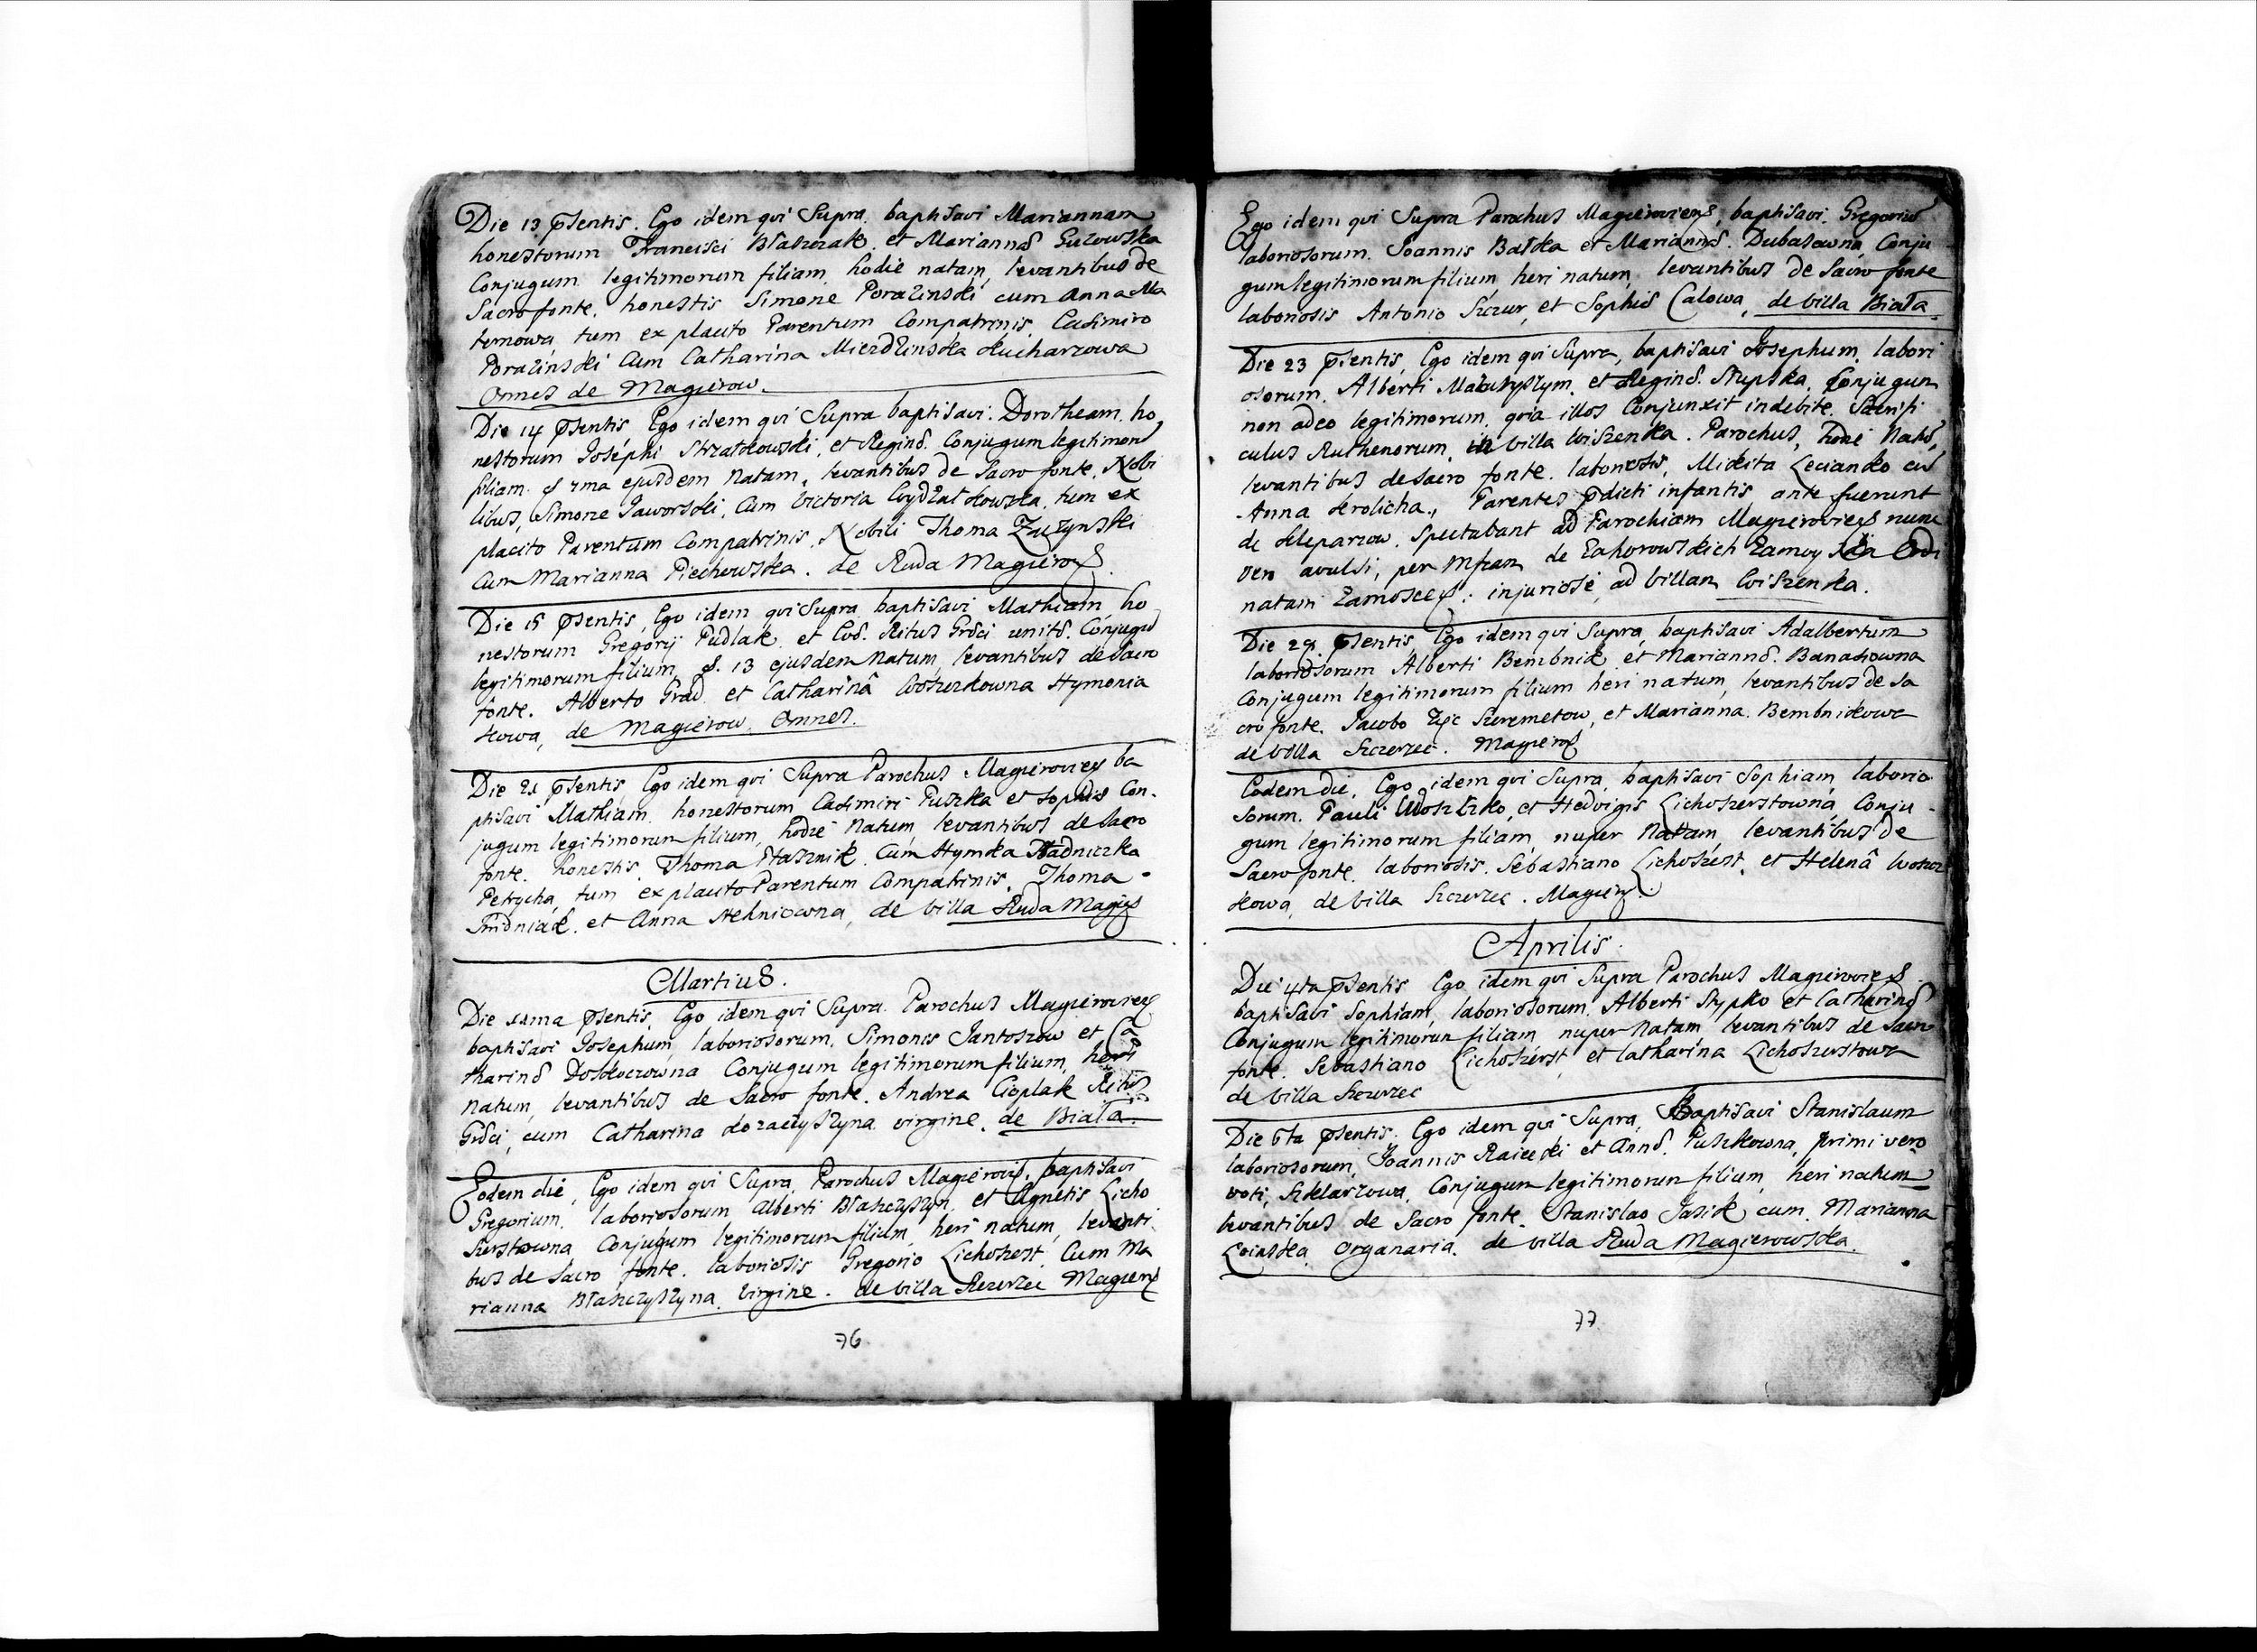 Die 13 psentis. Ego idem qui Supra baptisavi Mariannam
honestorum Francisci Błaszczak et Mariannæ Guzowska
Conjugum legitimorum filiam hodie natam, levantibus de
Sacro fonte, honestis Simone Porazinski cum Anna Ma
ternowa, tum ex placito Parentum Compatrinis, Casimiro
Porazinski Cum Catharina Mierdzinska Kucharzowa
Omnes de Magierow.
Die 14 psentis Ego idem qui Supra baptisavi Dorotheam ho
nestorum Josephi Strzałkowski, et Reginæ Conjugum legitimoru
filiam ejusdem Natam, levantibus de Sacro fonte, Nobi
libus, Simone Jaworski, Cum Victoria tum ex
placito Parentum Compatrinis. Nobili Thoma
Cum Marianna Piechowska. de Ruda Magierow.
Die 15 psentis, Ego idem qui Supra baptisavi Mathiam ho
nestorum Gregorij Pudlak et Evæ Ritus Græci unitæ. Conjugu
legitimorum filium, d. 13 ejusdem Natum, levantibus de Sacro
fonte. Alberto Grad et Catharinâ Hymonia
kowa, de Magierow. Omnes.
Die 21 psentis Ego idem qui Supra Parochus Magierovies ba
ptisavi Mathiam honestorum Casimiri Puszka et Sophiæ Con-
jugum legitimorum filium, hodie Natum, levantibus de Sacro
fonte. honestis. Thoma Ptasznik Cum Hymka Nadniczka
Petrycha, tum ex placito Parentum Compatrinis, Thoma
et Anna de villa Ruda Magies
Martius.
Die 11ma psentis. Ego idem qui Supra Parochus Magierovies
baptisavi Josephum, laboriosorum, Simonis Jantoszow et Ca
tharinæ Doskoczowna Conjugum legitimorum filium, heri
Natum, levantibus de Sacro fonte. Andrea Cioplak Ritus
Græci, cum Catharina virgine. de Biała.
Eodem die, Ego idem qui Supra Parochus Magierovies, baptisavi
Gregorium. laboriosorum Alberti Błaszczyszyn, et Agnetis Licho
szerstowna, Conjugum legitimorum filium, heri natum, levanti
bus de Sacro fonte. laboriosis Gregorio Lichoszerst Cum Ma
rianna Błaszczyszyna Virgine. de villa Szczerzec Magierov
76
Ego idem qui Supra Parochus Magierovies, baptisavi. Gregoriu
laboriosorum. Joannis Bałka et Mariannæ. Dubasowna, Conju
gum legitimorum filium, heri natum, levantibus de Sacro fonte
laboriosis Antonio Szczur, et Sophiæ Calowa, de villa Biała.
Die 23 psentis, Ego idem qui Supra, baptisavi Josephum, labori
osorum. Alberti et Reginæ. Słupska, Conjugum
non adeo legitimorum, qvia illos Conjunxit indebite. Sacrifi
culus Ruthenorum, in villa Wiszenka. Parochus, hodie Natu,
levantibus de Sacro fonte. laboriosis, Mikita Leciando cu
Anna Krolicha., Parentes pdicti infantis, ante fuerunt
de Kleparzow. Spectabant ad Parochiam Magierovies nunc
ven avulsi, per de Zahorowskich Zamoyska Ordi
natam Zamosces: injuriose, ad villam Wiszenka.
Die 29. psentis, Ego idem qui Supra, baptisavi Adalbertum
laboriosorum Alberti Bembnik et Mariannæ. Banachowna
Conjugum legitimorum filium heri natum, levantibus de Sa
cro fonte. Jacobo Zyc Szeremetow, et Marianna. Bembnikowa
de villa Szczerzec. Magierov
Eodem die, Ego idem qui Supra, baptisavi Sophiam, laborio
sorum. Pauli Woszko, et Hedvigis Lichoszerstowna, Conju-
gum legitimorum filiam, nuper Natam, levantibus de
Sacro fonte. laboriosis. Sebastiano Lichoszerst. et Helenâ
kowa, de villa Szczerzec. Magierov.
Aprilis.
Die 4ta psentis Ego idem qui Supra Parochus Magierovies
baptisavi Sophiam, laboriosorum, Alberti Stypko et Catharinæ
Conjugum legitimorum filiam nuper Natam levantibus de Sacro
fonte. Sebastiano Lichoszerst, et Catharina Lichoszerstowa
de villa Szczerzec
Die 6ta psentis. Ego idem qui Supra, Baptisavi Stanislaum
laboriosorum, Joannis et Annæ. Puszkowna, primi vero
voti, Szklarzowa, Conjugum legitimorum filium, heri natum
levantibus de Sacro fonte. Stanislao Jasik cum. Marianna
organaria. de villa Ruda Magierowska.
77.